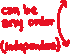 can be
any order
(independent)